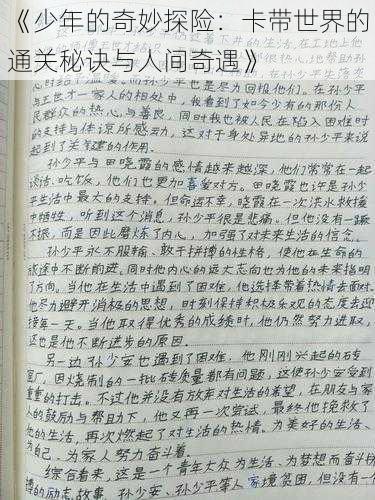 《少年的奇妙探险：卡带世界的
通关秘诀与人间奇遇》
与王世才一家人的相处中，我看到了如今少有的那份人
民群众的热心与善良，同时我也被人民在陷入困难时
的支持与体谅所感动，这对于身处异地的孙少平来说
起到了关键的作用。
孙少平与田晓霞的感情越来越深，他们常常在一起
谈话、吃饭，他们也更加喜爱对方。田晓霞也许是孙少
平生活中最大的支持。但命运不幸，晓霞在一次洪水救援
中牺牲，听到这个消息，孙少平很是悲痛，但他没有一蹶
不振，而是因此磨炼了内心，加强了对未来生活的信念。
孙少平永不服输、敢于拼搏的性格，使他在生命的
旅途中不断前进。同时他内心的远大志向也为他的未来指明
了方向。当他在生活中遇到了困难，他选择带着热情去面对。
他尽力避开消极的思想，时刻保持积极乐观的态度去迎
接每一天。当他取得优秀的成绩时，他仍然努力进取，
这也是他不断进步的原因。
另一边孙少安也遇到了困难，他刚刚兴起的砖
窑厂，因烧制的一批砖质量都有问题，这使孙少安受到
重重的打击。不过他并没有放弃对生活的希望，在朋友与家
人的鼓励与帮助下，他又再一次尝试，最终他挽救了
他的生活，再次燃起了对生活的热情，为美好的生活、
为自己、为家人努力奋斗着。
综合看来，这是一个青年大众为生活、为梦想而奋斗
的励志故事。孙少安、孙少平掌人家境贫困，但没有一个